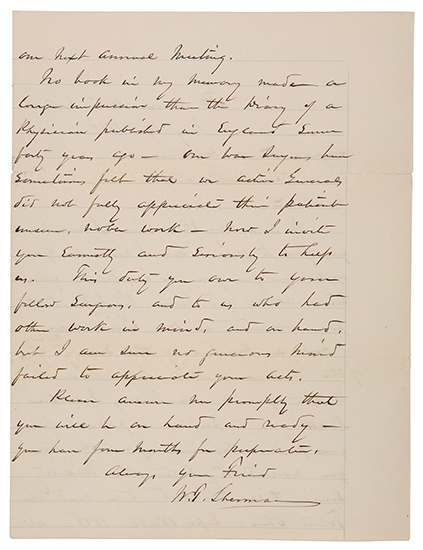 our next annual Meeting.
No book in my memory made a
longer impression than the Diary of a
Physician published in England some
forty years ago — our war Surgeons have
Sometimes felt that we active Generals
did not fully appreciate their patient
unseen, noble work — Now I invite
you Earnestly and Seriously to help
us. This duty you owe to your
fellow Surgeons, and to us who had
other work in mind, and on hand,
but I am sure no generous mind
failed to appreciate your acts.
Please answer me promptly that
you will be on hand and ready —
you have four Months for preparation.
Always your Friend
W. T. Sherman